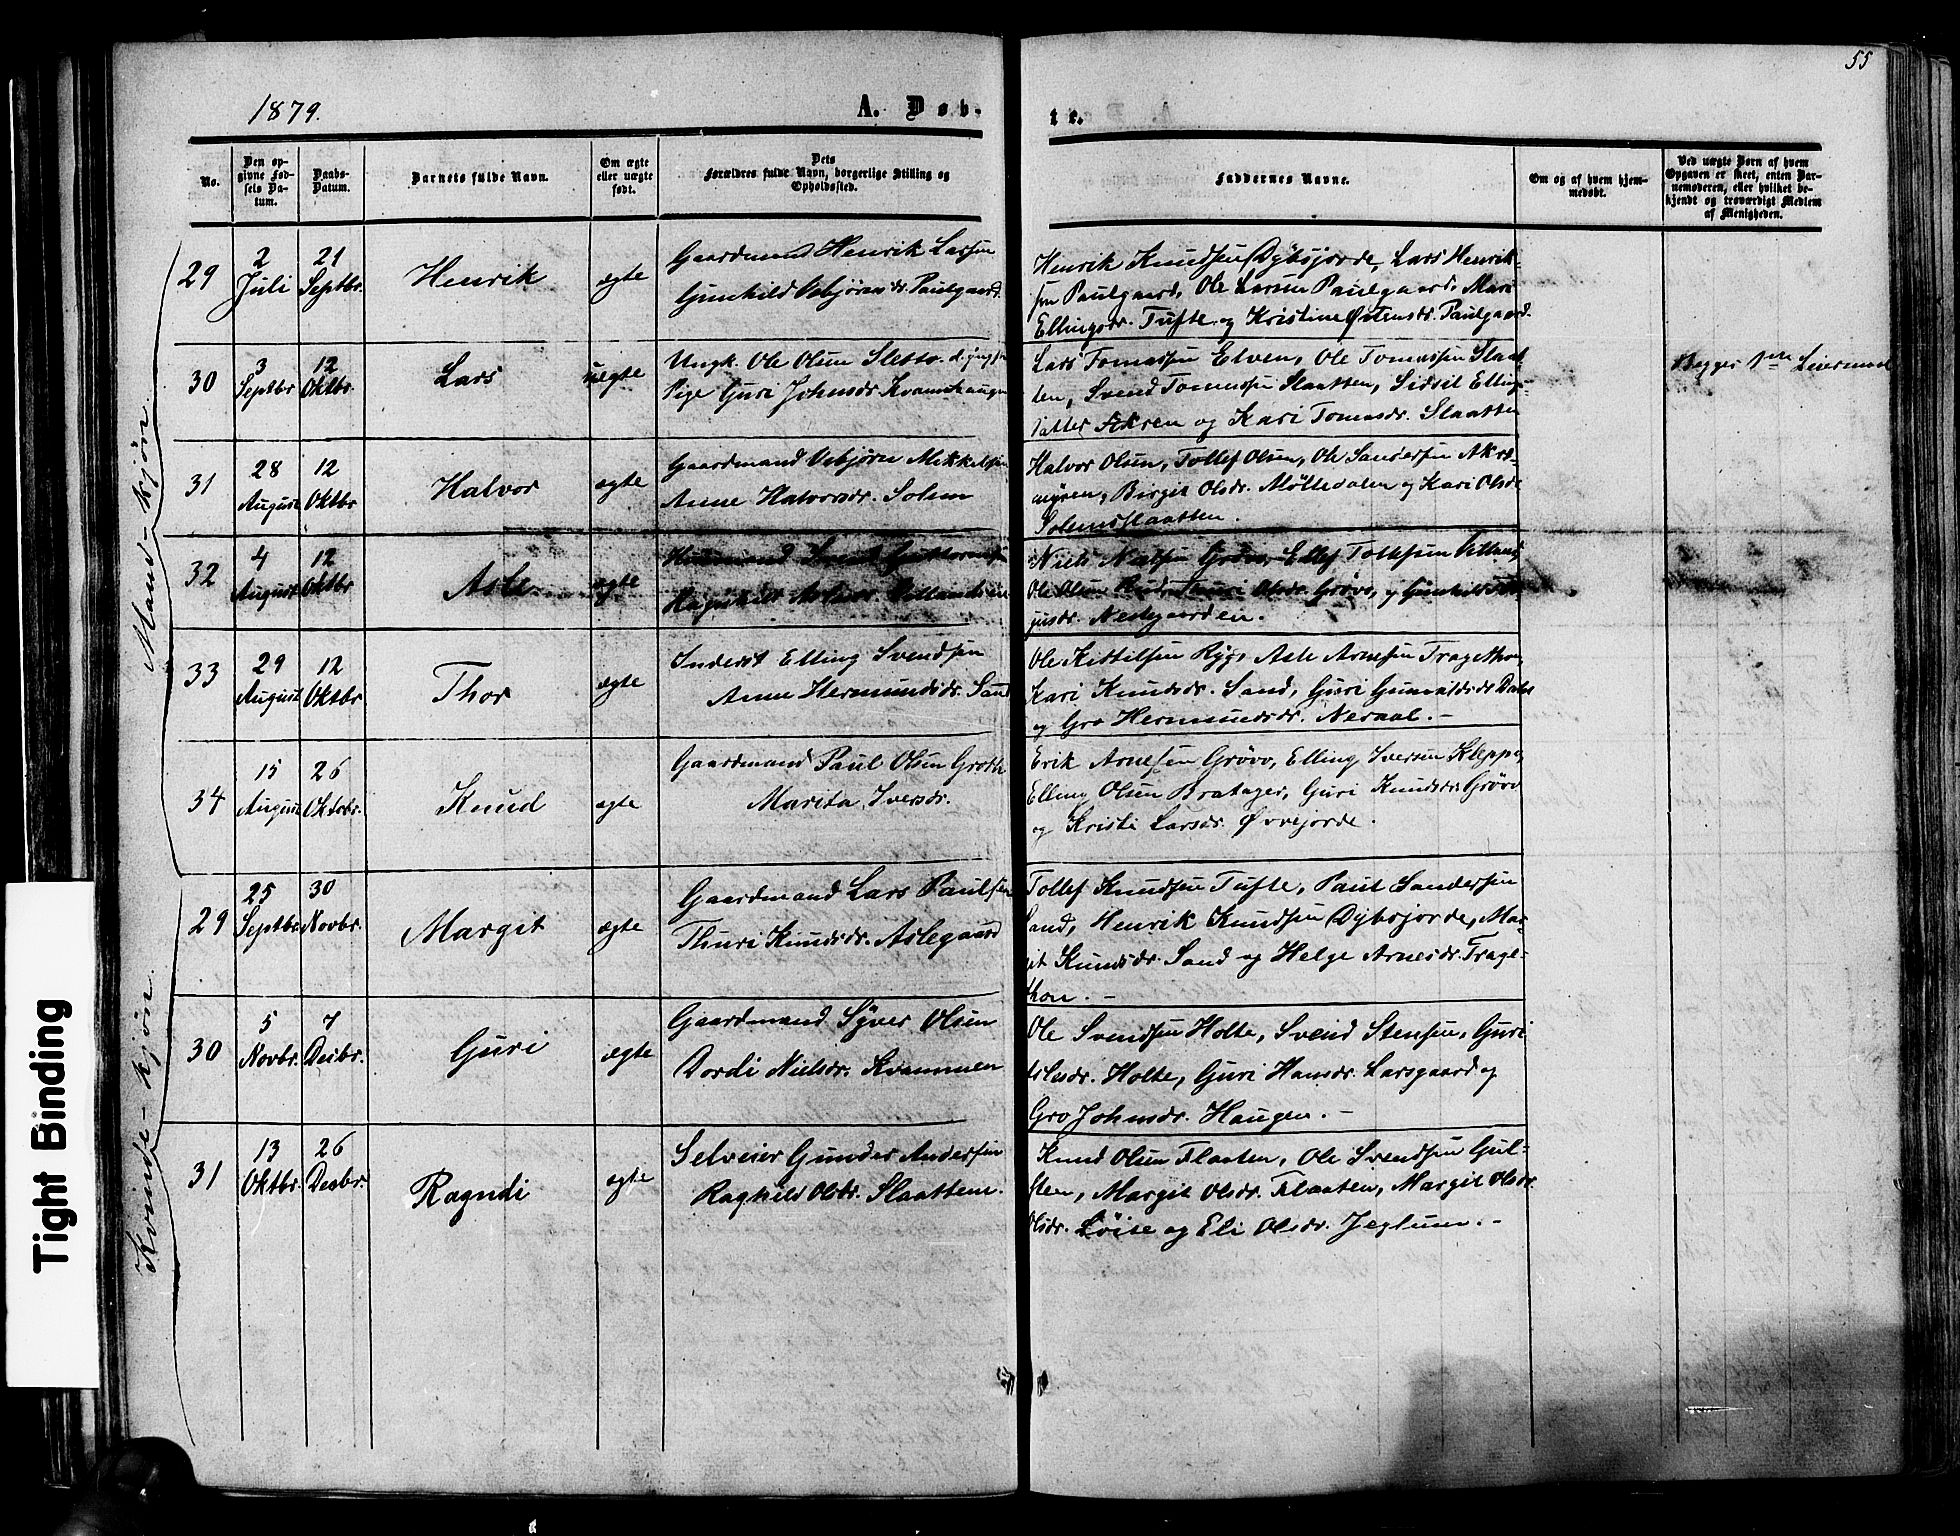 55
1879.
A. Døb-
te.
No.
Den op-
givne Fød-
sels Da-
tum.
Daabs-
Datum.
Barnets fulde Navn.
Om ægte
eller uægte
født.
Dets
Forældres fulde Navn, borgerlige Stilling og
Opholdssted.
Faddernes Navne.
Om og af hvem hjem-
medøbt.
Ved uægte Børn af hvem
Opgaven er skeet, enten Bar-
nemoderen, eller hvilket be-
kjendt og troværdigt Medlem
af Menigheden.
Mand-kjøn.
29
2
Juli
21
Septbr.
Henrik
ægte
Gaardmand Henrik Larsen
Gunhild Asbjørnsdr. Paulgaard.
Henrik Knudsen Dybsjorde, Lars Henrik-
sen Paulgaard, Ole Larsen Paulgaard, Mari
Ellingsdr. Tufte og Kristine Østensdr. Paulgaard.
30
3
Septbr
12
Oktbr.
Lars
uægte
Ungk. Ole Olsen Slettο.
Pige Guri Johnsdr. Kvamshaugen
Lars Tomassen Elven, Ole Tomassen Slaat-
ten, Svend Tomassen Slaatten, Sidsil Ellings
datter Akren og Kari Tomasdr. Slaatten
Begges 1ste Leiermaal
31
28
August
12
Oktbr
Halvor
ægte
Gaardmand Asbjørn Mikkelsen
Anne Halvorsdr. Solem
Halvor Olsen, Tollef Olsen, Ole Sandersen Akre-
myren, Birgit Olsdr. Mølledalen og Kari Olsdr
Solemsslaatten.
32
4
August
12
Oktbr
Asle
ægte
Husmand Svend Guttormsen
Ragnhild Aslesdr. Villandseie
Niels Nielsen Grøvo, Ellef Tollefsen Villand,
Ole Olsen Rud, Thuri Olsdr. Grøvo, og Gunhild
Nestegaarden.
33
29
August
12
Oktbr.
Thor
ægte
Inderst Elling Svendsen
Anne Hermundsdr. Sand
Ole Kittilsen Rygg, Asle Arnesen Tragethon,
Kari Knudsdr. Sand, Guri Gunvaldsdr Dalen
og Gro Hermundsdr. Neraal. -
34
15
August
26
Oktobr.
Knud
ægte
Gaardmand Paul Olsen Groth
Marita Iversdr.
Erik Arnesen Grøvo, Elling Iversen Kleppo,
Elling Olsen Bratager, Guri Knudsdr. Grøvo
og Kristi Larsdr. Øvrejorde.
Kvinde-kjøn.
29
25
Septbr.
30
Novbr.
Margit
ægte
Gaardmand Lars Paulsen
Thuri Knudsdr. Aslegaard
Tollef Knudsen Tufte, Paul Sandersen
Sand, Henrik Knudsen Dybsjorde, Mar-
git Knudsdr. Sand og Helge Arnesdr. Trage-
thon. -
30
5
Novbr.
7
Desbr.
Guri
ægte
Gaardmand Syver Olsen
Dordi Nielsdr. Kvammen
Ole Svendsen Holte, Svend Stensen, Guri
Olsdr. Holte, Guri Hansdr. Larsgaard og
Gro Johnsdr. Haugen. -
31
13
Oktbr.
26
Desbr.
Ragndi
ægte
Selveier Gunder Andersen
Raghild Olsdr. Slaatten.
Knud Olsen Flaaten, Ole Svendsen Gul-
sten, Margit Olsdr. Flaaten, Margit Olsdr.
Olsdr. Løise og Eli Olsdr. Jeglum. -
Tight Binding